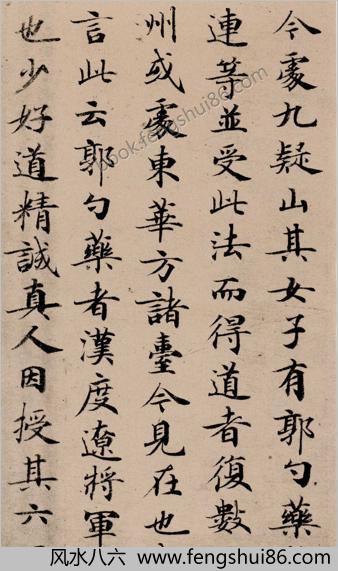 今處九疑山其女子有郭勺藥
連等並受此法而得道者復數
州或處東華方諸臺今見在也
言此云郭勺藥者漢度遼將軍
也少好道精誠真人因授其六
book.fengshui86.com
风水八六 www.fengshui86.com